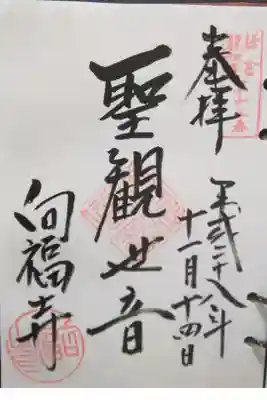 奉拝
平成二十八年
十一月十四日
聖観世音
向福寺